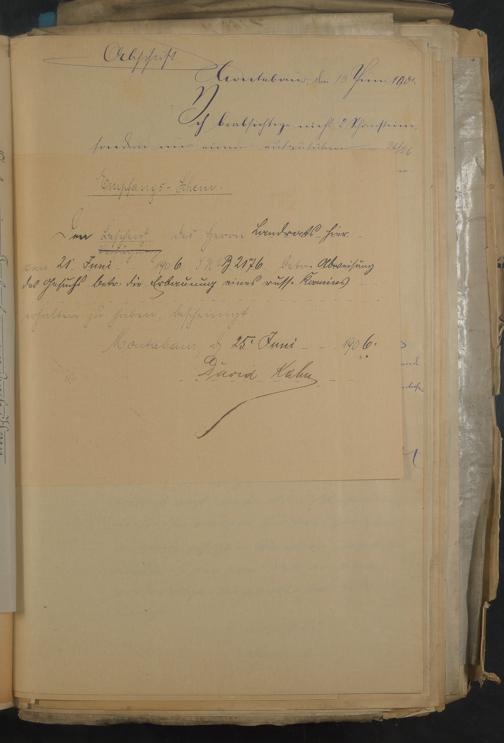 Abschrift
Montabaur, den 13 Juni 190
Ich beabsichtige nicht 2 Schornsteine,
sondern nur einen
Empfangs-Schein.
Den Bescheid des Herrn Landrats hier
vom 21. Juni 1906 J.N. B 2176 betr. Abweisung
des Gesuchs betr. die Erbauung eines russ. Kamines
erhalten zu haben, bescheinigt
Montabaur d 25. Juni 1906.
David Kahn